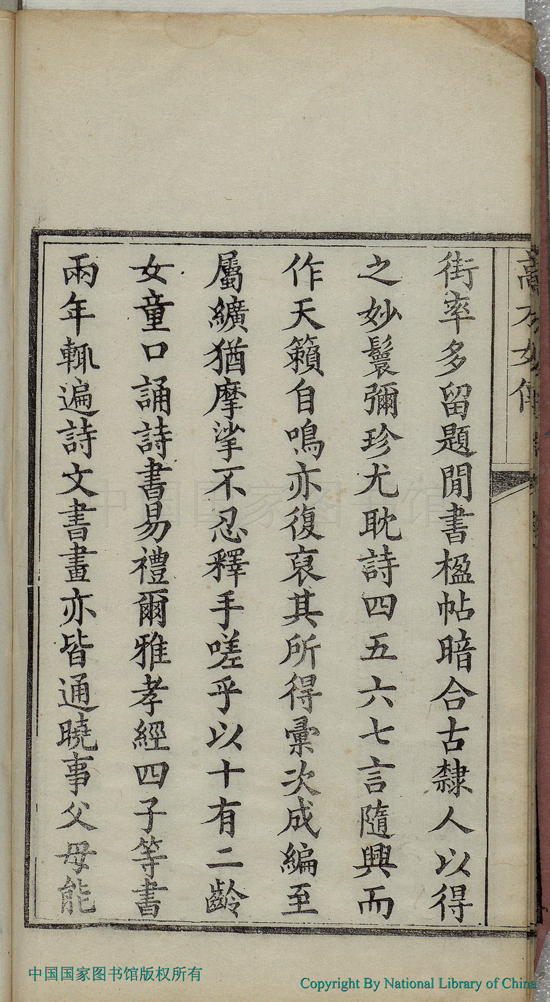 街率多留題閒書楹帖暗合古隸人以得
之妙鬟彌珍尤耽詩四五六七言隨興而
作天籟自鳴亦復裒其所得彙次成編至
屬纊猶摩挲不忍釋手嗟乎以十有二齡
女童口誦詩書易禮爾雅孝經四子等書
兩年輒遍詩文書畫亦皆通曉事父母能
中国国家图书馆
中国国家图书馆版权所有
Copyright By National Library of China